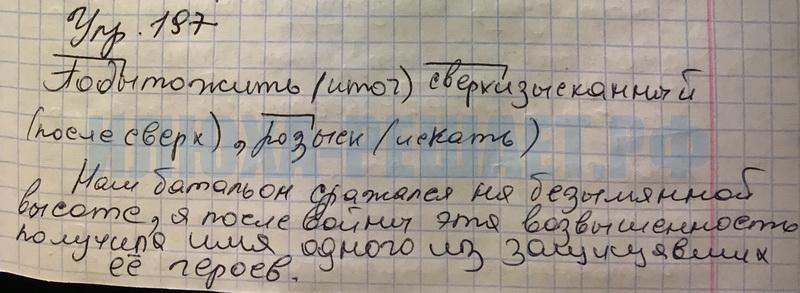 Упр. 197
Подытожить (итог) сверхизысканный
(после сверх), розыск (искать)
Наш батальон сражался на безымянной
высоте, а после войны эта возвышенность
получила имя одного из защищавших
её героев.